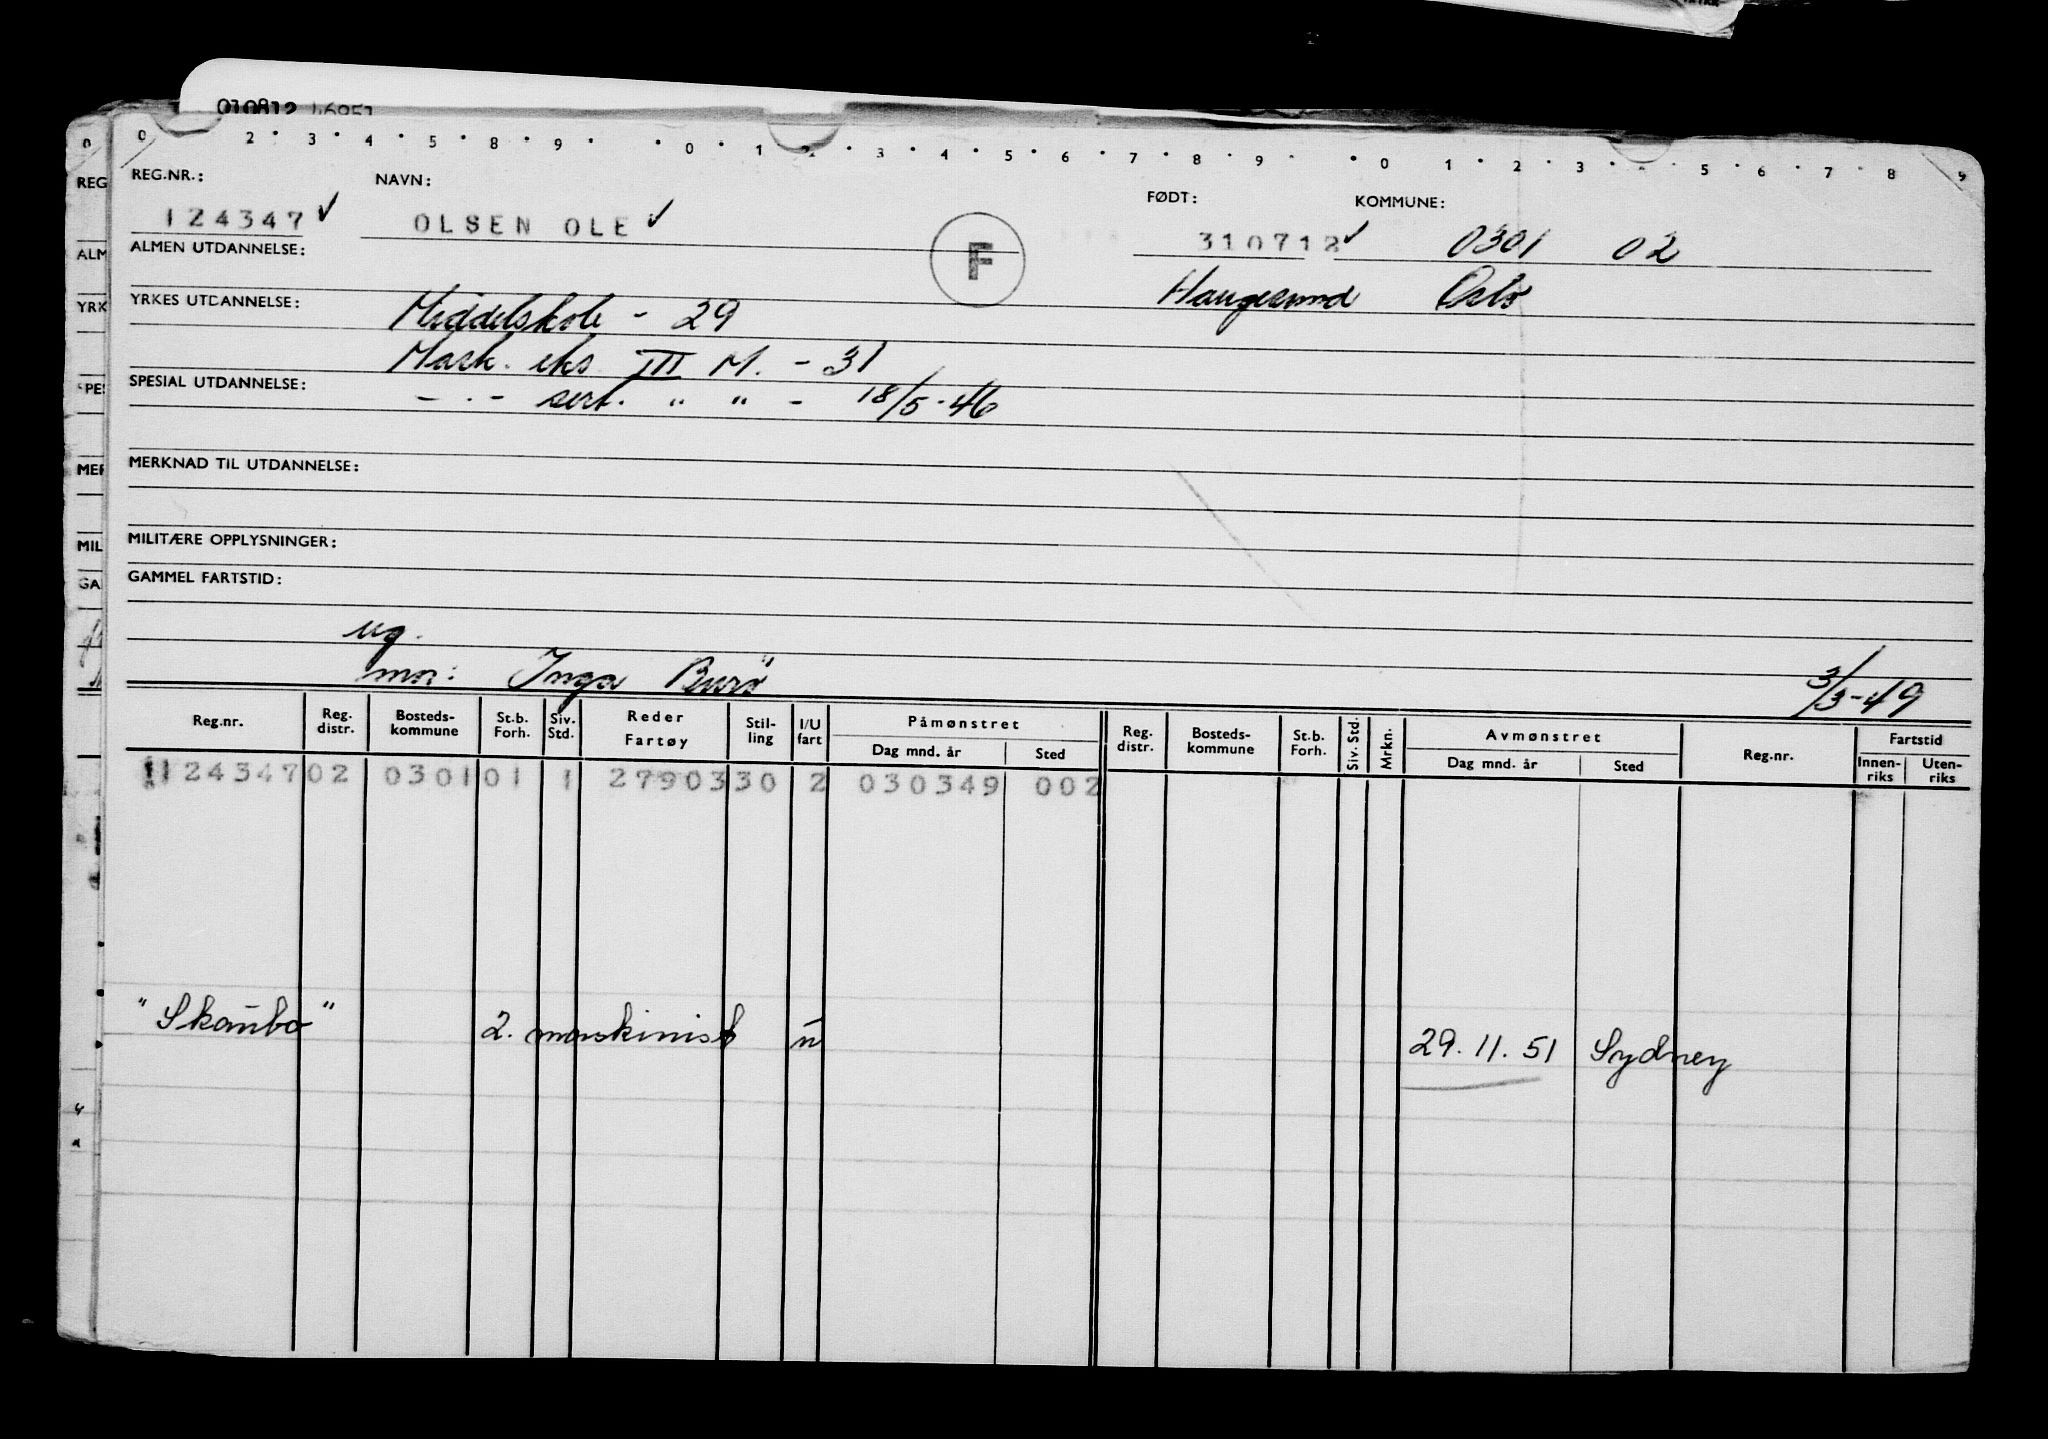 010812 46951
0 2 3 4 5 8 9 0 1 2 3 4 5 6 7 8 9 0 1 2 3 5 6 7 8 9
REG.NR.: NAVN: FØDT: KOMMUNE:
124347 ✓ OLSEN OLE ✓ F 310712 ✓ 0301 02
ALMEN UTDANNELSE: Haugesund Oslo
YRKES UTDANNELSE: Middelskole - 29
Mask. eks III M. - 31
SPESIAL UTDANNELSE: - . - sert. " " - 18/5 - 46
MERKNAD TIL UTDANNELSE:
MILITÆRE OPPLYSNINGER:
GAMMEL FARTSTID:
ug.
mor: Inga Burø 3/3-49
Reg.nr. Reg. distr. Bosteds-kommune St.b. Forh. Siv. Std. Reder Fartøy Stil-ling I/U fart Påmønstret Dag mnd. år Sted Reg. distr. Bosteds-kommune St.b. Forh. Siv. Std. Mrkn. Avmønstret Dag mnd. år Sted Reg.nr. Fartstid Innen-riks Uten-riks
112434702 030101 1 2790330 2 030349 002
"Skaubo" 2. maskinist u 29.11.51 Sydney